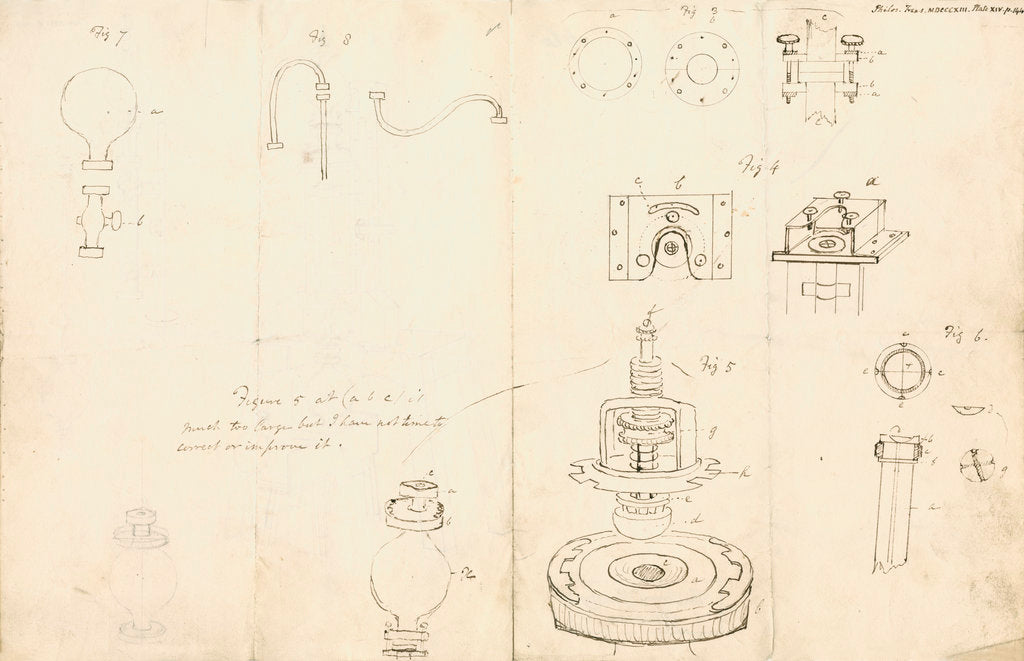 Philos. Trans. MDCCCXIII. Plate XIV. p.
Fig 7
Fig 8
Fig 3
a
b
c
a
b
b
a
c
a
b
Fig 4
c
b
a
Fig 5
g
h
e
d
c
a
b
Fig 6.
e
e
e
e
b
a
g
Figure 5 at (a b c) is
much too large but I have not time to
correct or improve it.
c
a
b